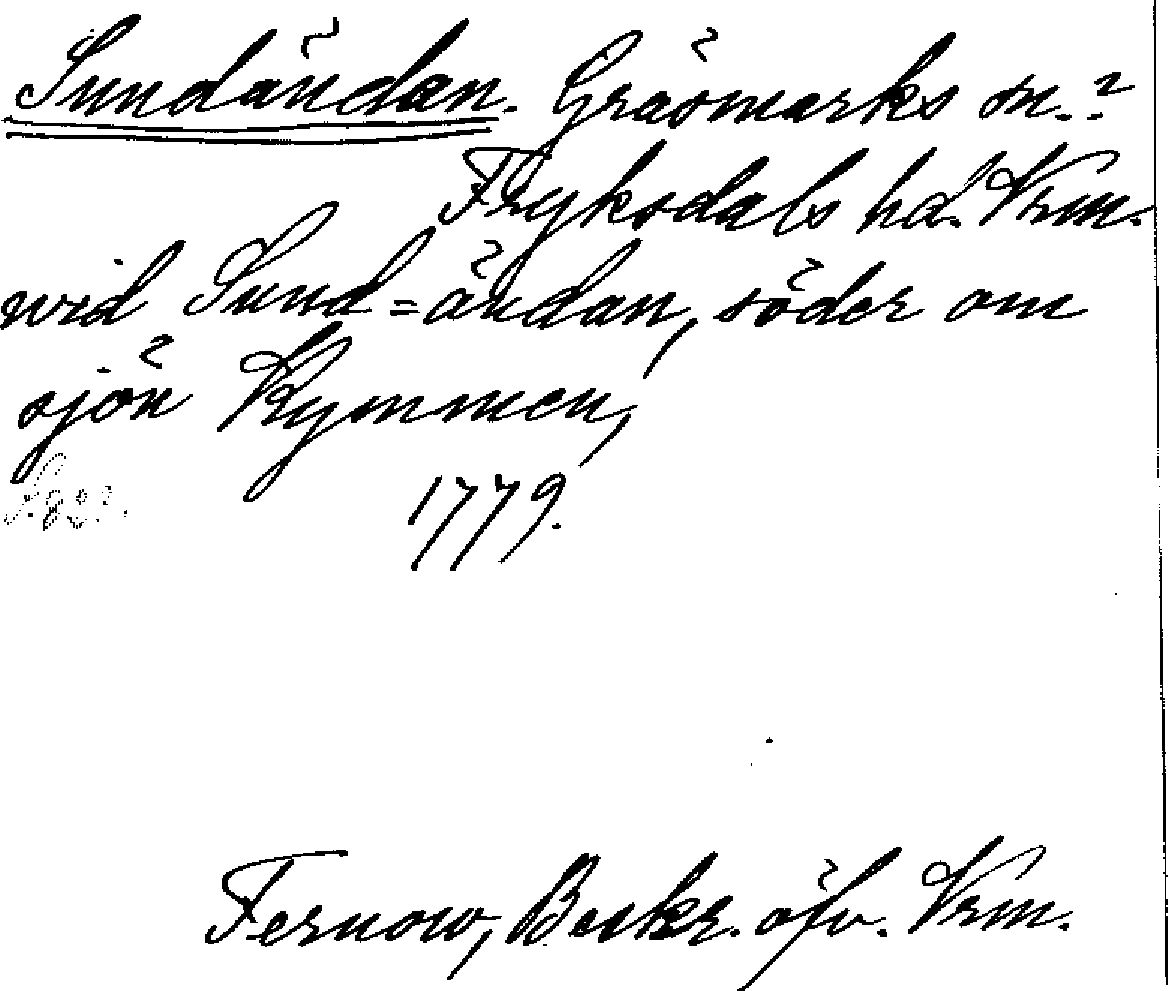 Sundändan. Gräsmarks sn.?
Fryksdals hd. Vrm.
wid Sund=ändan, söder om
sjön Kymmen,
1779.
Fernow, Beskr. öfv. Vrm.